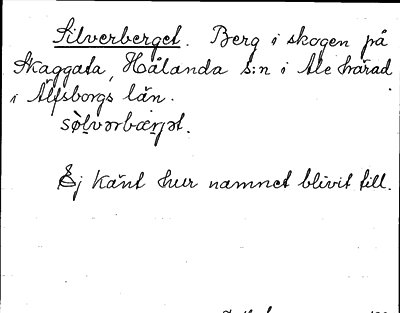 Silverberget. Berg i skogen på
Skaggata, Hålanda s:n i Ale härad
i Älfsborgs län.
Ej känt hur namnet blivit till.